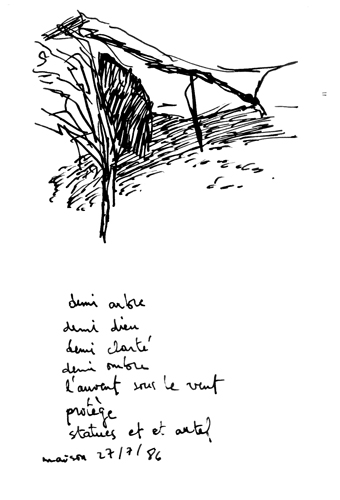 demi arbre
demi dieu
demi clarté
demi ombre
l'auvent sous le vent
protège
statues et et
maison 27/7/86